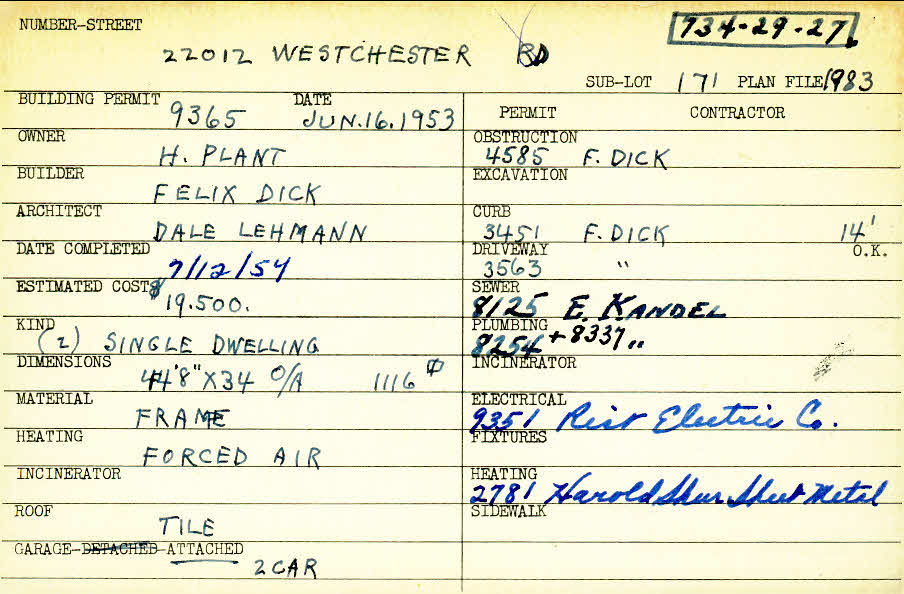 NUMBER-STREET
734-29-27
22012 WESTCHESTER RD
SUB-LOT 171 PLAN FILE 1983
BUILDING PERMIT 9365 DATE JUN.16.1953
OWNER H. PLANT
BUILDER FELIX DICK
ARCHITECT DALE LEHMANN
DATE COMPLETED 7/12/54
ESTIMATED COST $19.500.
KIND (2) SINGLE DWELLING
DIMENSIONS 44'8" X 34 O/A 1116
MATERIAL FRAME
HEATING FORCED AIR
INCINERATOR
ROOF TILE
GARAGE-DETACHED-ATTACHED
2 CAR
PERMIT CONTRACTOR
OBSTRUCTION
4585 F. DICK
EXCAVATION
CURB
3451 F. DICK 14'
DRIVEWAY O.K.
3563 "
SEWER
8125 E. KANDEL
PLUMBING
8254 + 8337 "
INCINERATOR
ELECTRICAL
9351 Rist Electric Co.
FIXTURES
HEATING
2781 Harold Shur. Sheet Metal
SIDEWALK